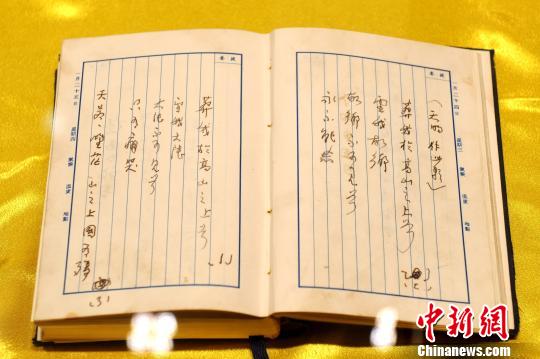 一月二十四日
(天明作此歌)
葬我於高山之上兮
望我故鄉
故鄉不可見兮
永不能忘
一月二十五日
葬我於高山之上兮
(1)
望我大陸
大陸不可見兮
只有痛哭
山之上國有殤
(3)
中新网
Chinanews.com